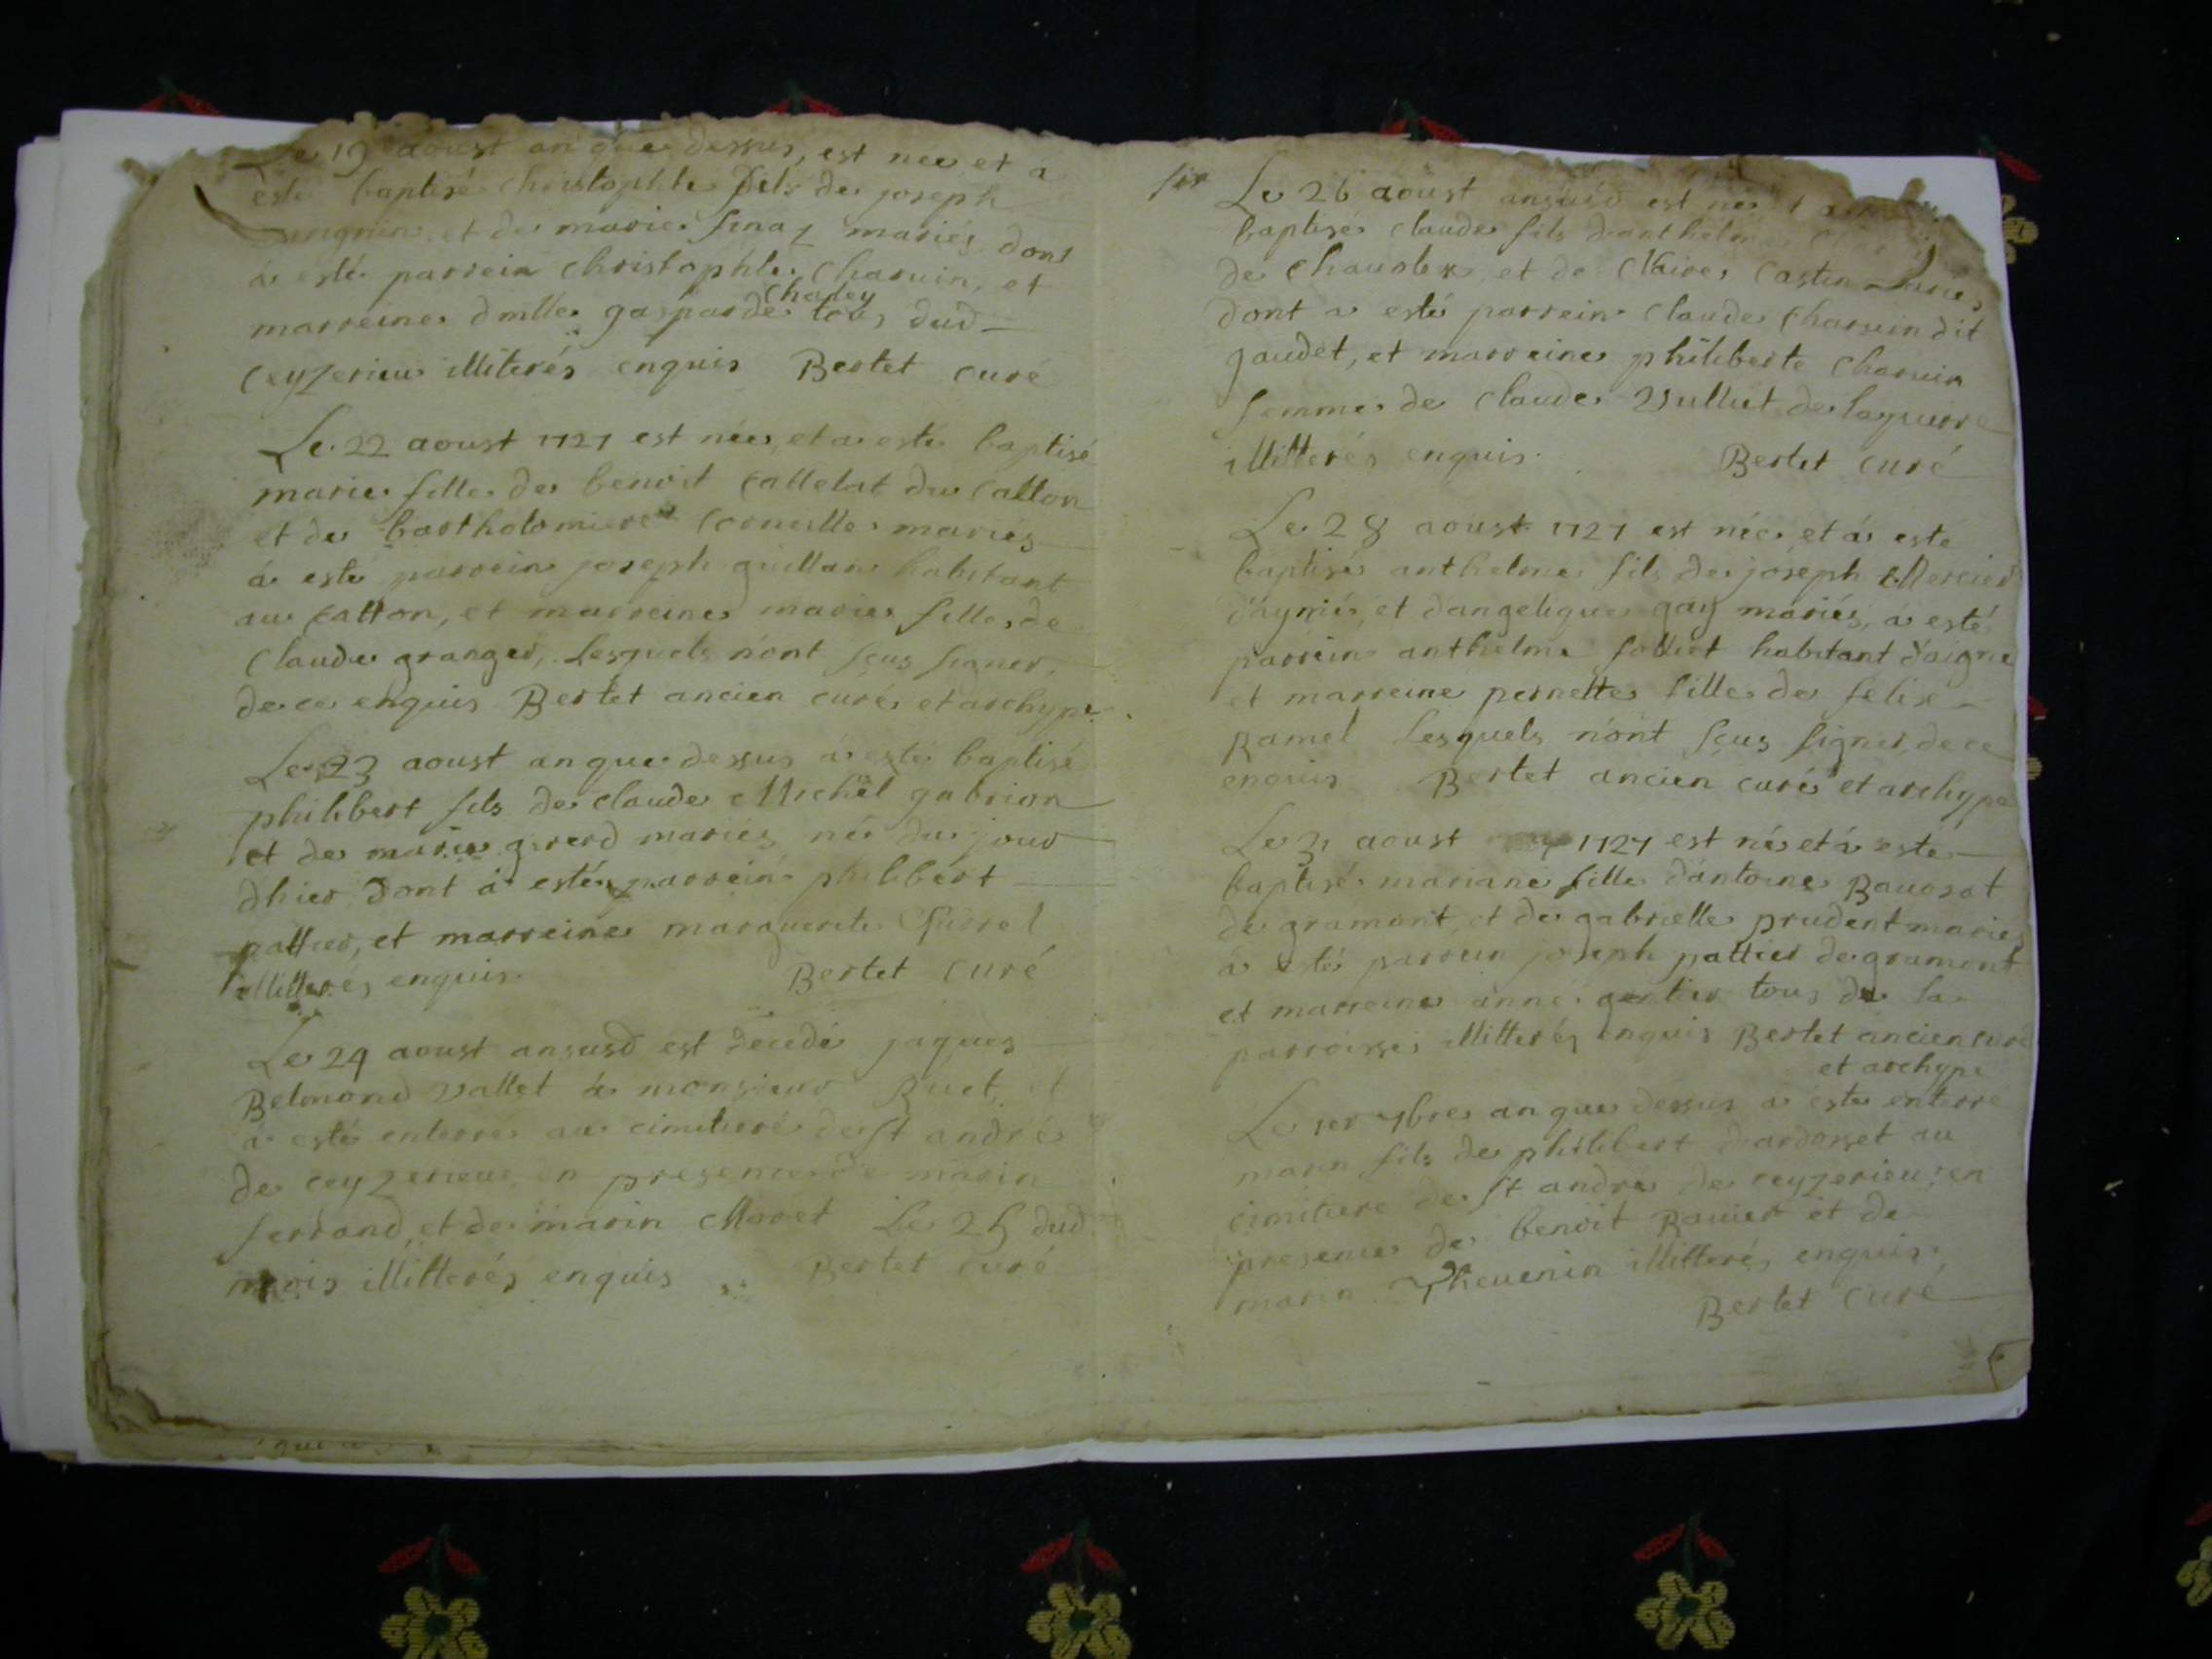 Le 19 aoust an que dessus, est née et a
esté baptisé christophle fils de joseph
et de marie finaz mariés dont
a esté parrein christophle Charuin, et
Chaley
marreine dmlle gasparde tous dud
Ceyzerieu illiterés enquis Bertet curé
Le 22 aoust 1727 est née, et a esté baptisé
marie fille de benoit Callelat du Catton
et de bartholomiere Corneille mariés
a esté parrein joseph guillan habitant
au Catton, et marreine marie fille de
Claude granger, Lesquels n'ont sçus signer,
de ce enquis Bertet ancien curé et archypr
Le 23 aoust an que dessus a esté baptisé
philibert fils de claude Michel gabrion
et de marie gererd mariés né du jour
d'hier dont a esté parrein philibert
pattier, et marreine marguerite
illitterés enquis Bertet curé
Le 24 aoust ansusd est décedé jaques
Belmond vallet de monsieur Ruet, et
a esté enterré au cimitiere de st andré
de ceyzerieu en presence de marin
ferrand, et de marin Moret Le 25 dud
mois illitterés enquis Bertet curé
Le 26 aoust ansusd est né et a
baptisé claude fils d'anthelme
de et de Claire Castin mariés
dont a esté parrein Claude Charuin dit
gaudet, et marreine philiberte Charuin
femme de Claude Vulliet de
illitterés enquis. Bertet curé
Le 28 aoust 1727 est née et a esté
baptisé anthelme fils de joseph Mercier
d'aymié, et d'angelique gay mariés, a esté
parrein anthelme folliet habitant
et marreine pernette fille de felix
Ramel Lesquels n'ont sçus signer, de ce
enquis Bertet ancien curé et archypr
Le 31 aoust 1727 est né et a esté
baptisé mariane fille d'antoine Rauosat
de gramont, et de gabrielle prudent mariés
a esté parrein joseph pattier de gramont
et marreine anne gentier tous de la
parroisse illitterés enquis Bertet ancien curé
et archypr
Le 1er 7bre an que dessus a esté enterré
marin fils de philibert d'ardosset au
cimitiere de st andré de ceyzerieu en
presence de benoit Rauier et de
marin Theuenin illitterés enquis.
Bertet curé